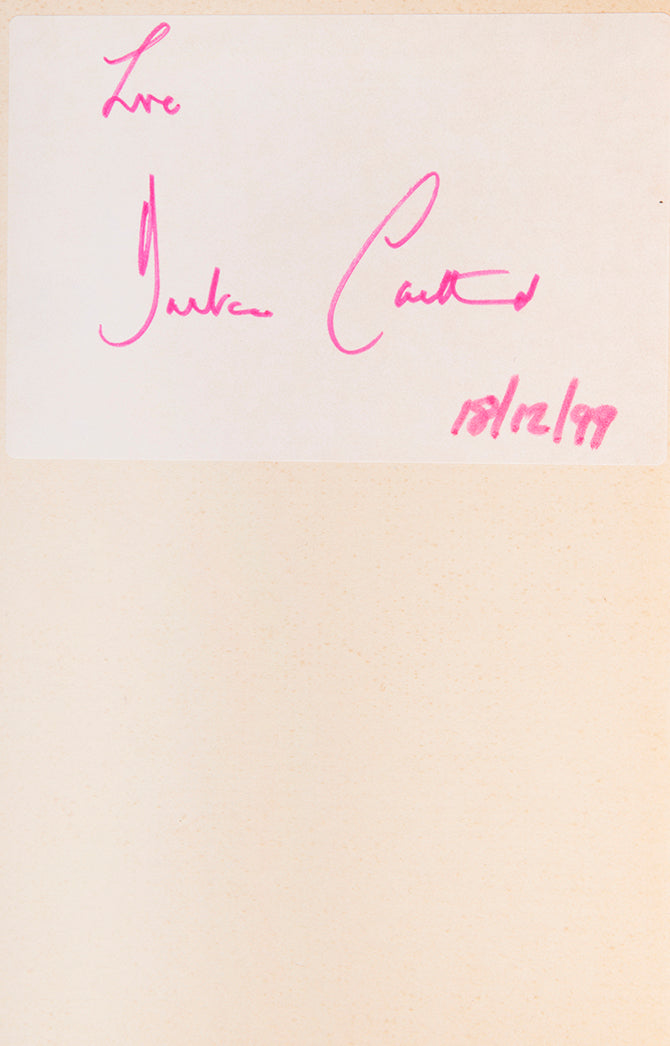 Love
Barbara Cartland
18/12/99